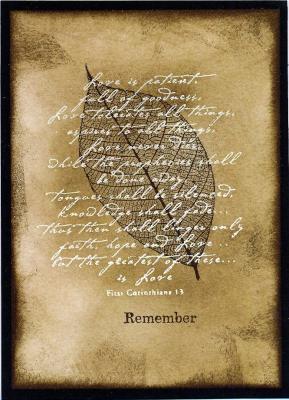 Love is patient,
full of goodness,
Love tolerates all things,
aspires to all things,
Love never dies,
while the prophecies shall
be done away,
tongues shall be silenced,
knowledge shall fade...
thus then shall linger only
faith, hope and love...
but the greatest of these...
is love
First Corinthians 13
Remember